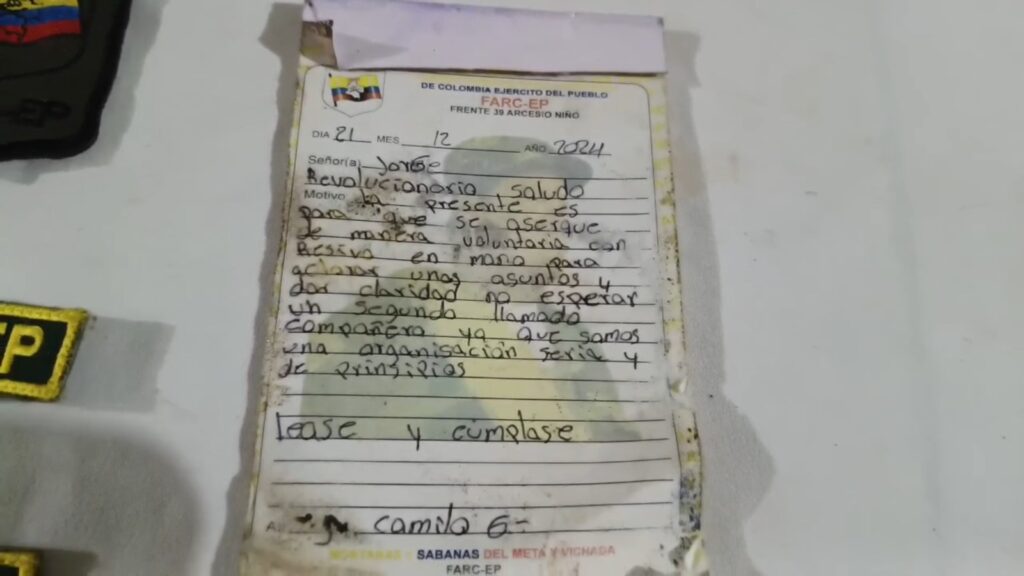 DE COLOMBIA EJERCITO DEL PUEBLO
FARC-EP
FRENTE 39 ARCESIO NIÑO
DIA 21 MES 12 AÑO 2024
Señor(a) Jorge
Revolucionario saludo
Motivo la presente es
para que se aserque
de manera voluntaria con
Resivo en mano para
aclarar unos asuntos y
dar claridad no esperar
un segundo llamado
compañero ya que somos
una organisación seria y
de prinsipios
lease y cúmplase
camilo G-
MONTAÑAS Y SABANAS DEL META Y VICHADA
FARC-EP
-EP
EP